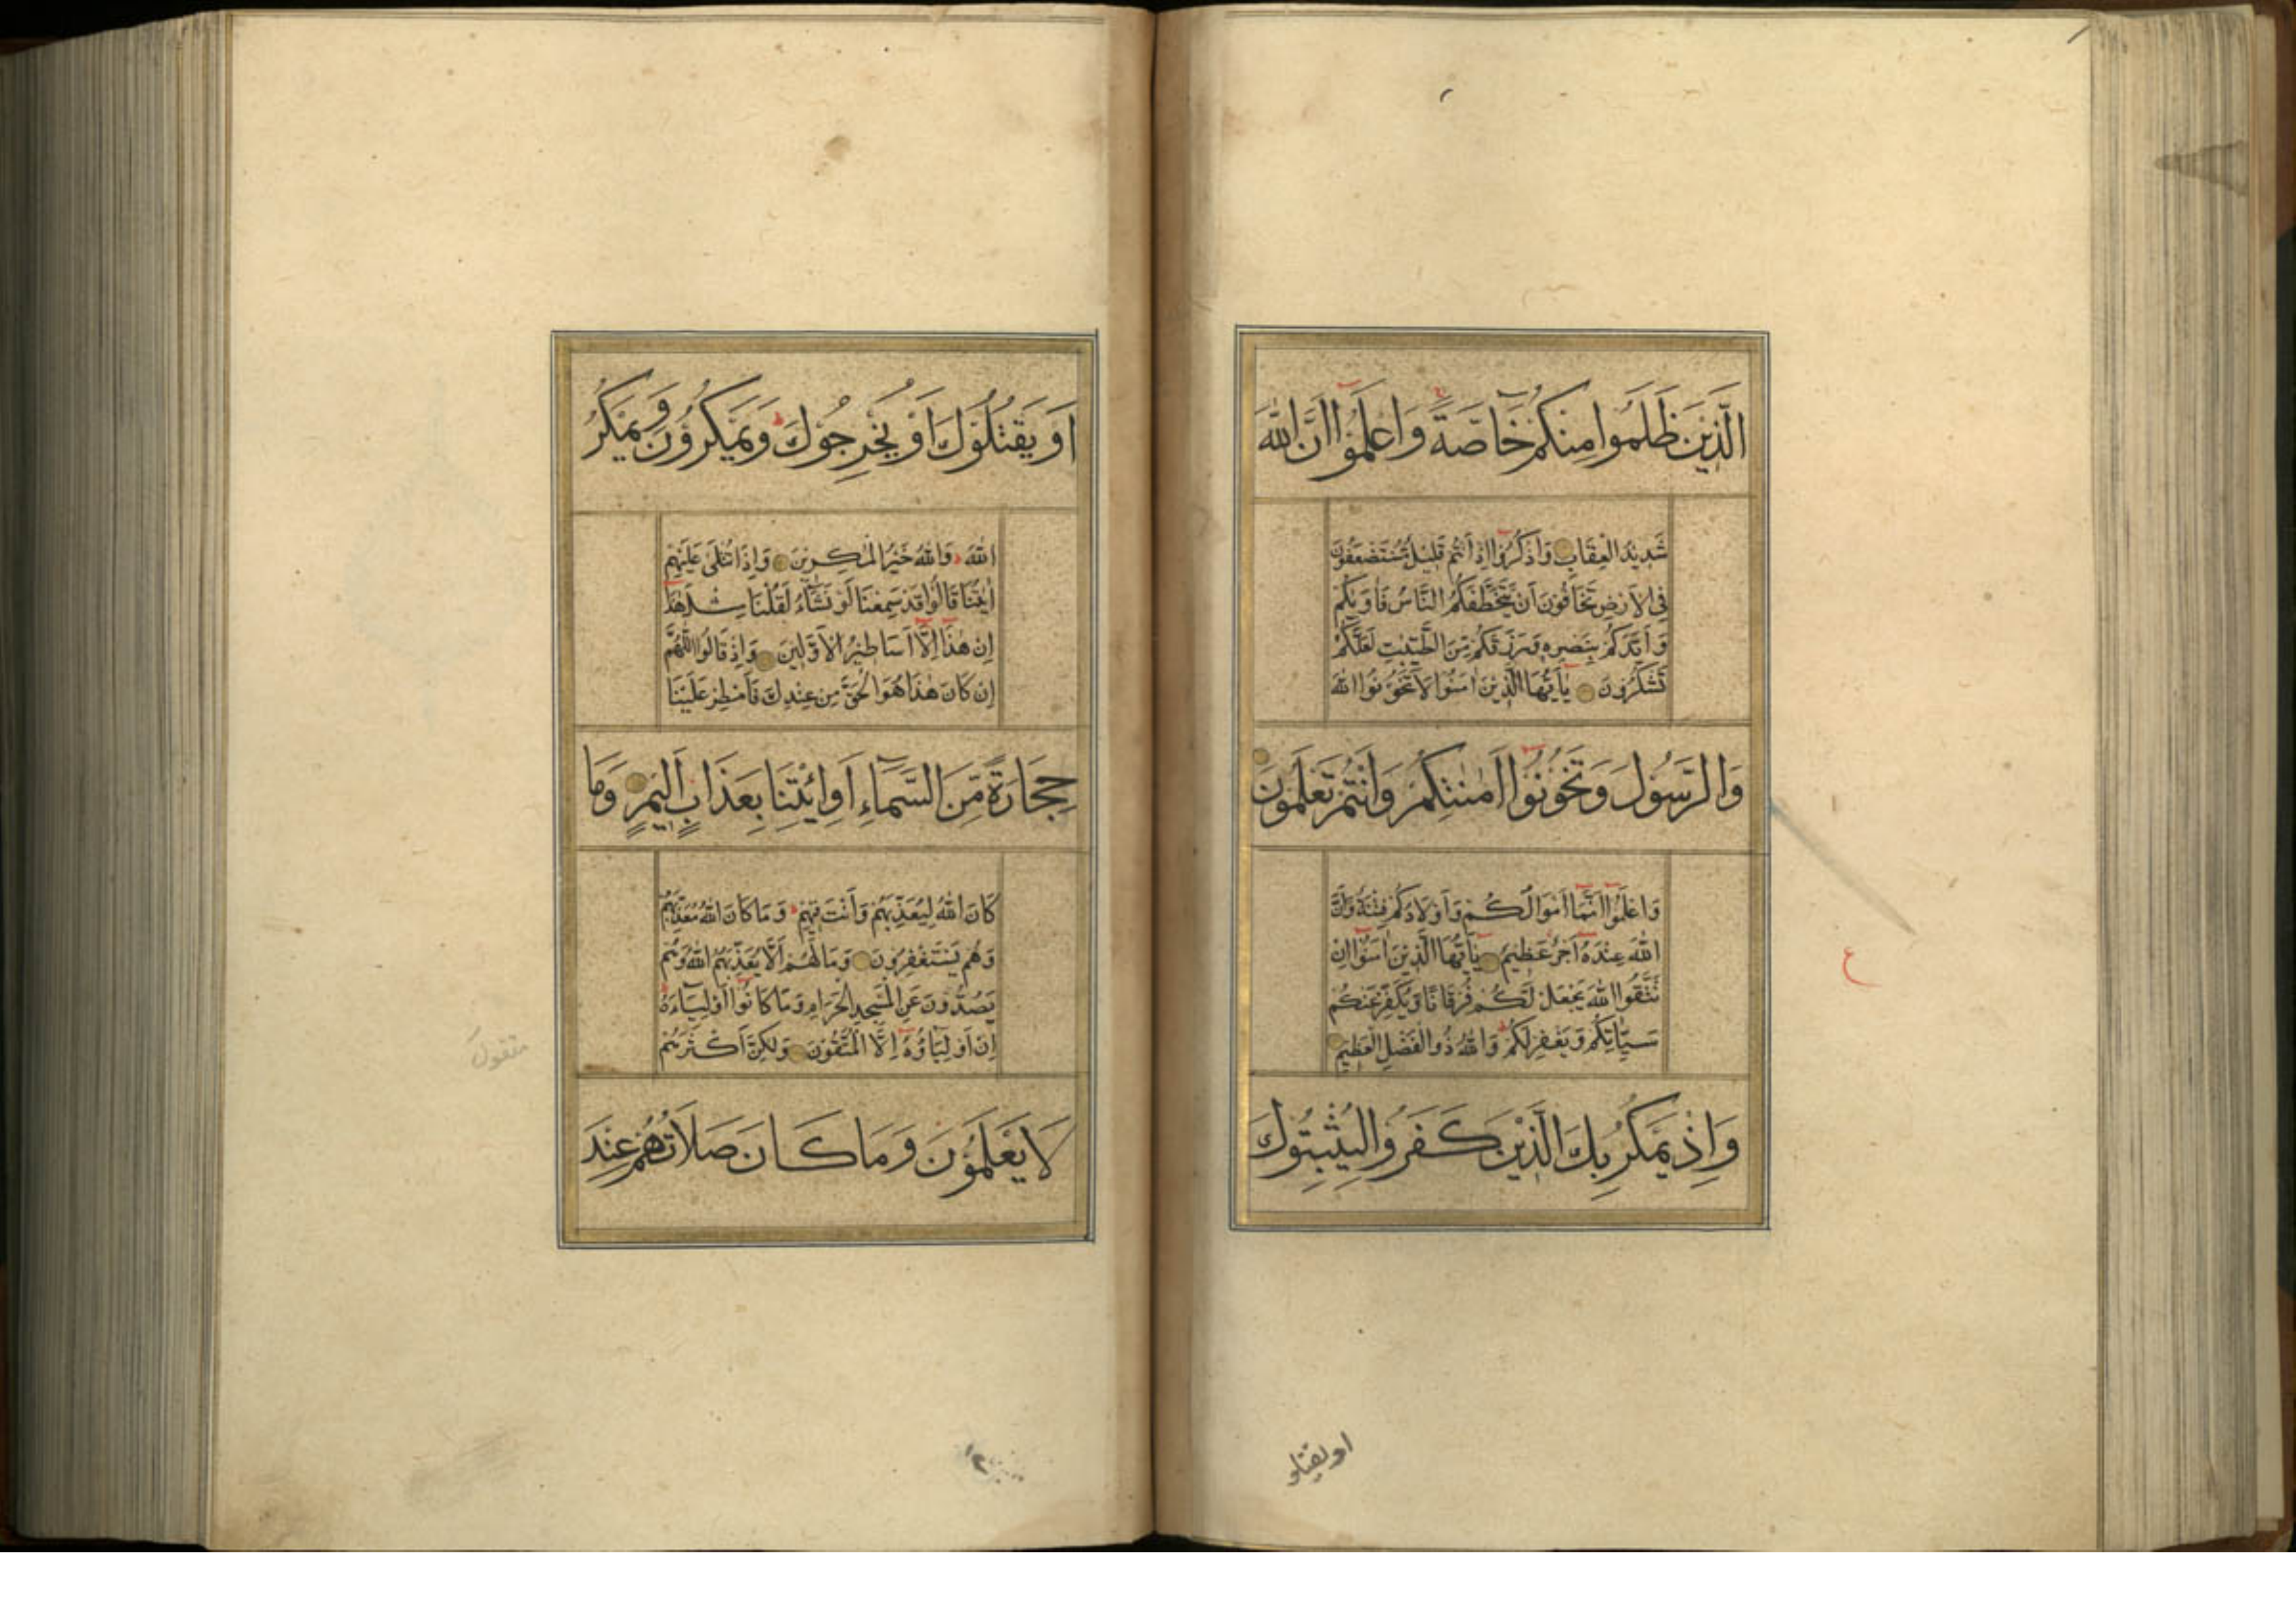 الَّذِيْنَ ظَلَمُوا مِنْكُمْ خَآصَّةً وَاعْلَمُوْٓا اَنَّ اللّٰهَ
شَدِيْدُ الْعِقَابِ وَاذْكُرُوْٓا اِذْ اَنْتُمْ قَلِيْلٌ مُّسْتَضْعَفُوْنَ
فِي الْاَرْضِ تَخَافُوْنَ اَنْ يَّتَخَطَّفَكُمُ النَّاسُ فَاٰوٰىكُمْ
وَاَيَّدَكُمْ بِنَصْرِهٖ وَرَزَقَكُمْ مِّنَ الطَّيِّبٰتِ لَعَلَّكُمْ
تَشْكُرُوْنَ يٰٓاَيُّهَا الَّذِيْنَ اٰمَنُوْا لَا تَخُوْنُوا اللّٰهَ
وَالرَّسُوْلَ وَتَخُوْنُوْٓا اَمٰنٰتِكُمْ وَاَنْتُمْ تَعْلَمُوْنَ
وَاعْلَمُوْٓا اَنَّمَآ اَمْوَالُكُمْ وَاَوْلَادُكُمْ فِتْنَةٌ وَاَنَّ
اللّٰهَ عِنْدَهٗٓ اَجْرٌ عَظِيْمٌ يٰٓاَيُّهَا الَّذِيْنَ اٰمَنُوْٓا اِنْ
تَتَّقُوا اللّٰهَ يَجْعَلْ لَّكُمْ فُرْقَانًا وَّيُكَفِّرْ عَنْكُمْ
سَيِّاٰتِكُمْ وَيَغْفِرْ لَكُمْ وَاللّٰهُ ذُو الْفَضْلِ الْعَظِيْمِ
وَاِذْ يَمْكُرُ بِكَ الَّذِيْنَ كَفَرُوْا لِيُثْبِتُوْكَ
ع
او يقتلو
اَوْ يَقْتُلُوْكَ اَوْ يُخْرِجُوْكَ وَيَمْكُرُوْنَ وَيَمْكُرُ
اللّٰهُ وَاللّٰهُ خَيْرُ الْمٰكِرِيْنَ وَاِذَا تُتْلٰى عَلَيْهِمْ
اٰيٰتُنَا قَالُوْا قَدْ سَمِعْنَا لَوْ نَشَآءُ لَقُلْنَا مِثْلَ هٰذَآ
اِنْ هٰذَآ اِلَّآ اَسَاطِيْرُ الْاَوَّلِيْنَ وَاِذْ قَالُوا اللّٰهُمَّ
اِنْ كَانَ هٰذَا هُوَ الْحَقَّ مِنْ عِنْدِكَ فَاَمْطِرْ عَلَيْنَا
حِجَارَةً مِّنَ السَّمَآءِ اَوِ ائْتِنَا بِعَذَابٍ اَلِيْمٍ وَمَا
كَانَ اللّٰهُ لِيُعَذِّبَهُمْ وَاَنْتَ فِيْهِمْ وَمَا كَانَ اللّٰهُ مُعَذِّبَهُمْ
وَهُمْ يَسْتَغْفِرُوْنَ وَمَا لَهُمْ اَلَّا يُعَذِّبَهُمُ اللّٰهُ وَهُمْ
يَصُدُّوْنَ عَنِ الْمَسْجِدِ الْحَرَامِ وَمَا كَانُوْٓا اَوْلِيَآءَهٗ
اِنْ اَوْلِيَآؤُهٗٓ اِلَّا الْمُتَّقُوْنَ وَلٰكِنَّ اَكْثَرَهُمْ
لَا يَعْلَمُوْنَ وَمَا كَانَ صَلَاتُهُمْ عِنْدَ